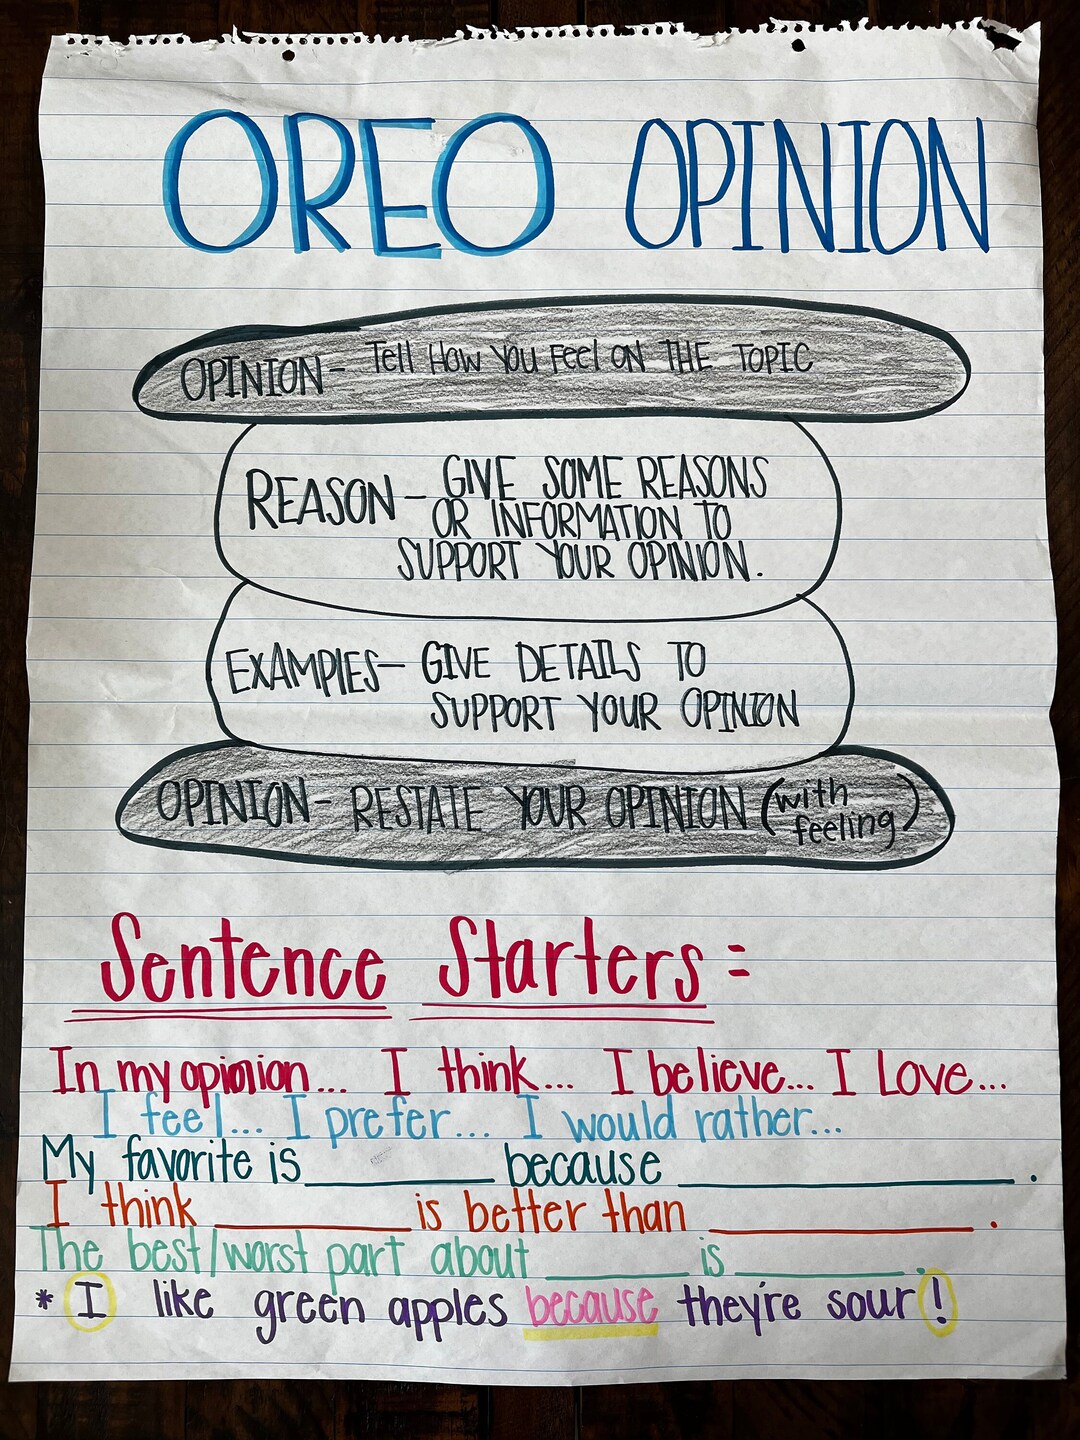 OREO OPINION
OPINION- Tell How You Feel ON THE TOPIC
REASON - GIVE SOME REASONS
OR INFORMATION TO
SUPPORT YOUR OPINION.
EXAMPLES- GIVE DETAILS TO
SUPPORT YOUR OPINION
OPINION- RESTATE YOUR OPINION (with
feeling)
Sentence Starters:
In my opinion... I think... I believe... I Love...
I feel... I prefer... I would rather...
My favorite is ________ because ____________.
I think ________ is better than ____________.
The best/worst part about ______ is ________.
* I like green apples because they're sour!